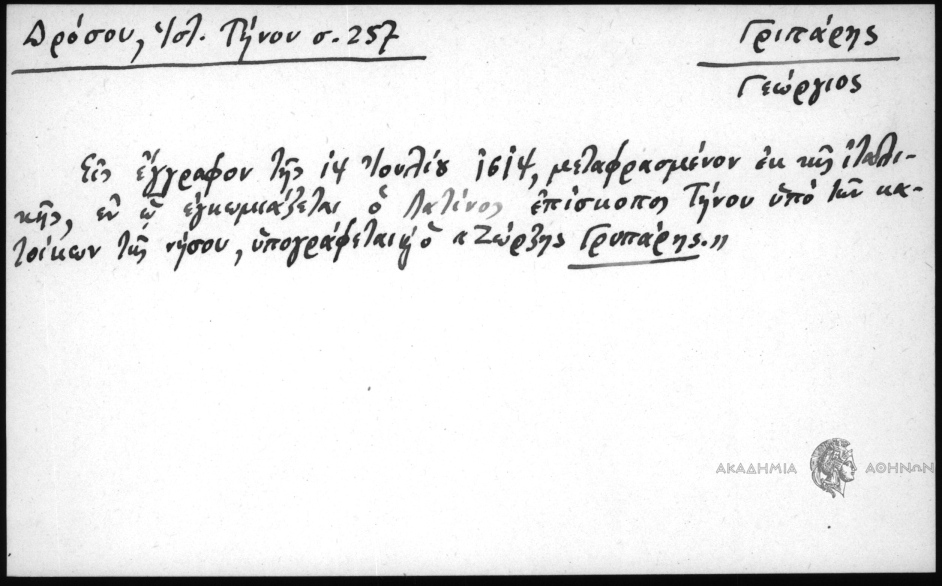 Δρόσου, Ἱστ. Τήνου σ. 257
Γριπάρης
Γεώργιος
Εἰς ἔγγραφον τῆς 14 Ἰουλίου 1614, μεταφρασμένον ἐκ τῆς ἰταλι-
κῆς, ἐν ᾧ ἐγκωμιάζεται ὁ Λατῖνος ἐπίσκοπος Τήνου ὑπὸ τῶν κα-
τοίκων τῆς νήσου, ὑπογράφεται ὁ «Ζώρζης Γρυπάρης.»
ΑΚΑΔΗΜΙΑ ΑΘΗΝΩΝ